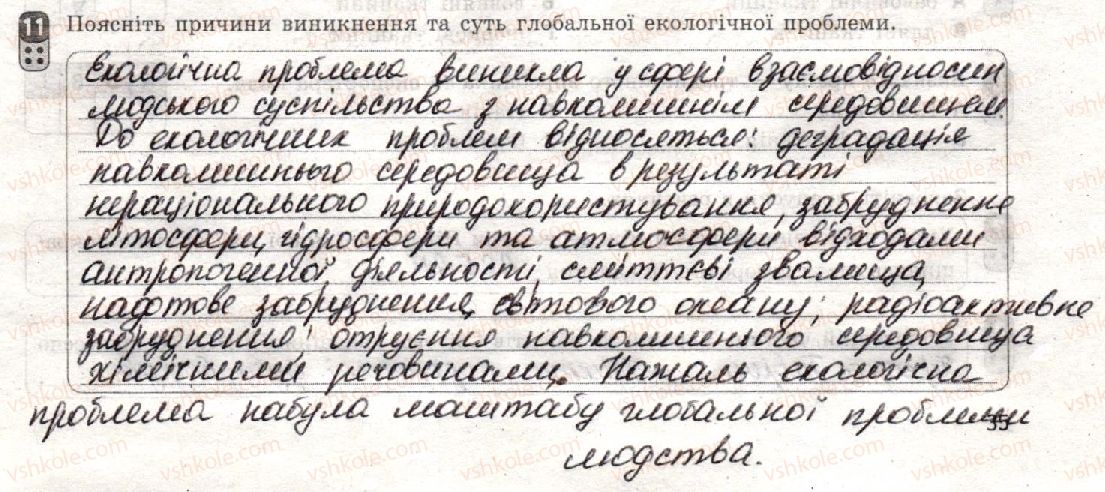 11 Поясніть причини виникнення та суть глобальної екологічної проблеми.
Екологічна проблема виникла у сфері взаємовідносин
людського суспільства з навколишнім середовищем.
До екологічних проблем відносяться: деградація
навколишнього середовища в результаті
нераціонального природокористування, забруднення
літосфери, гідросфери та атмосфери відходами
антропогенної діяльності, сміттєві звалища,
нафтове забруднення, світового океану; радіоактивне
забруднення, отруєння навколишнього середовища
хімічними речовинами. Нажаль екологічна
проблема набула маштабу глобальної проблеми
людства.